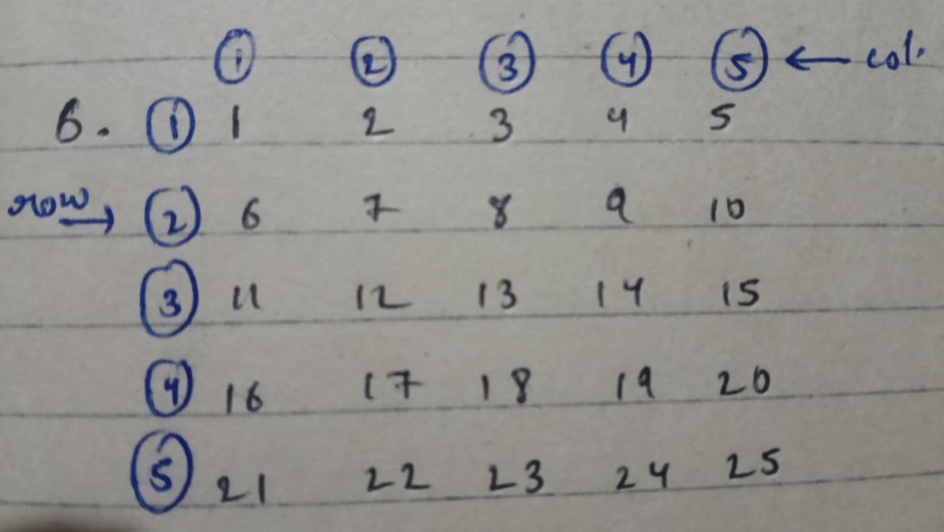 ① ② ③ ④ ⑤ ← col.
6. ① 1 2 3 4 5
row → ② 6 7 8 9 10
③ 11 12 13 14 15
④ 16 17 18 19 20
⑤ 21 22 23 24 25